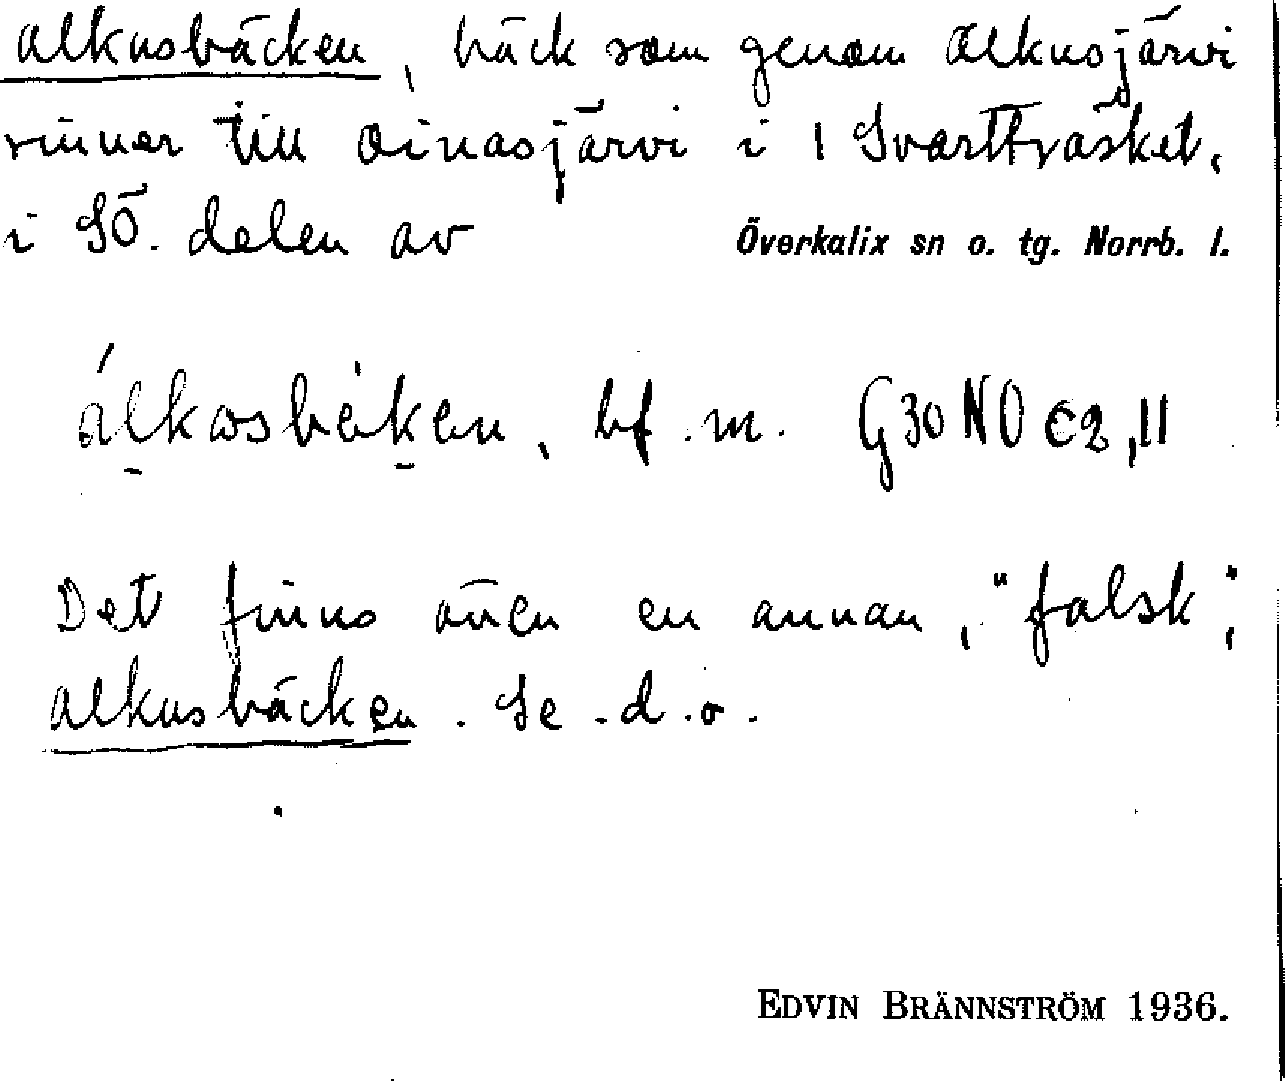 Alkusbäcken, bäck som genom Alkusjärvi
rinner till Oinasjärvi i 1 Svartträsket,
i SÖ. delen av Överkalix sn o. tg. Norrb. l.
álkosbèken, bf. m. G30 NO c2,11
Det finns även en annan, "falsk",
Alkusbäcken. Se d.o.
EDVIN BRÄNNSTRÖM 1936.